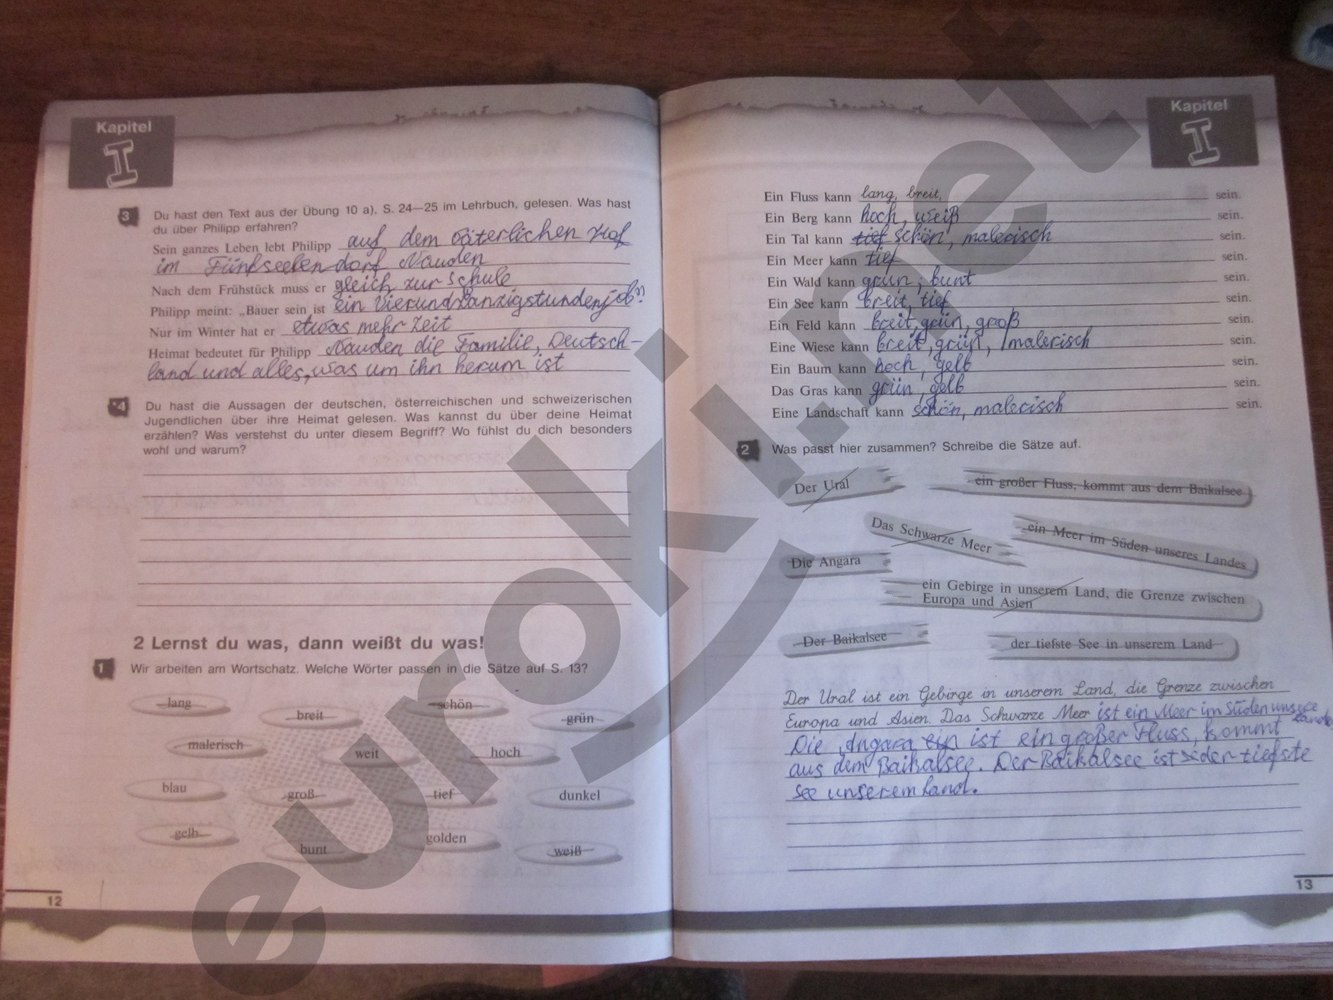 Kapitel
I
3 Du hast den Text aus der Übung 10 a), S. 24—25 im Lehrbuch, gelesen. Was hast
du über Philipp erfahren?
Sein ganzes Leben lebt Philipp auf dem väterlichen Hof
im Fünfseelendorf Nauden
Nach dem Frühstück muss er gleich zur Schule
Philipp meint: „Bauer sein ist ein Vierundzwanzigstundenjob“
Nur im Winter hat er etwas mehr Zeit
Heimat bedeutet für Philipp Nauden die Familie, Deutsch-
land und alles, was um ihn herum ist
4 Du hast die Aussagen der deutschen, österreichischen und schweizerischen
Jugendlichen über ihre Heimat gelesen. Was kannst du über deine Heimat
erzählen? Was verstehst du unter diesem Begriff? Wo fühlst du dich besonders
wohl und warum?
2 Lernst du was, dann weißt du was!
1 Wir arbeiten am Wortschatz. Welche Wörter passen in die Sätze auf S. 13?
lang breit schön grün
malerisch weit hoch
blau groß tief dunkel
gelb bunt golden weiß
12
Kapitel
I
Ein Fluss kann lang, breit, sein.
Ein Berg kann hoch, weiß sein.
Ein Tal kann tief schön, malerisch sein.
Ein Meer kann tief sein.
Ein Wald kann grün, bunt sein.
Ein See kann breit, tief sein.
Ein Feld kann breit, grün, groß sein.
Eine Wiese kann breit, grün, malerisch sein.
Ein Baum kann hoch, gelb sein.
Das Gras kann grün, gelb sein.
Eine Landschaft kann schön, malerisch sein.
2 Was passt hier zusammen? Schreibe die Sätze auf.
Der Ural
ein großer Fluss, kommt aus dem Baikalsee
Das Schwarze Meer
ein Meer im Süden unseres Landes
Die Angara
ein Gebirge in unserem Land, die Grenze zwischen
Europa und Asien
Der Baikalsee
der tiefste See in unserem Land
Der Ural ist ein Gebirge in unserem Land, die Grenze zwischen
Europa und Asien. Das Schwarze Meer ist ein Meer im Süden unsesce Landes
Die Angara ein ist ein großer Fluss, kommt
aus dem Baikalsee. Der Baikalsee ist der tiefste
See unserem Land.
13
euroki.net